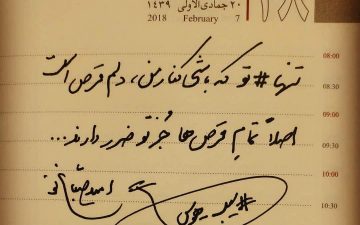 ۲۰ جمادی‌الاولی ۱۴۳۹
2018 February 7
۱۸
08:00
تنها #تو که باشی کنار من، دلم قرص است
08:30
09:00
اصلاً تمامِ قرص ها جُز تو ضرر دارند...
09:30
10:00
10:30